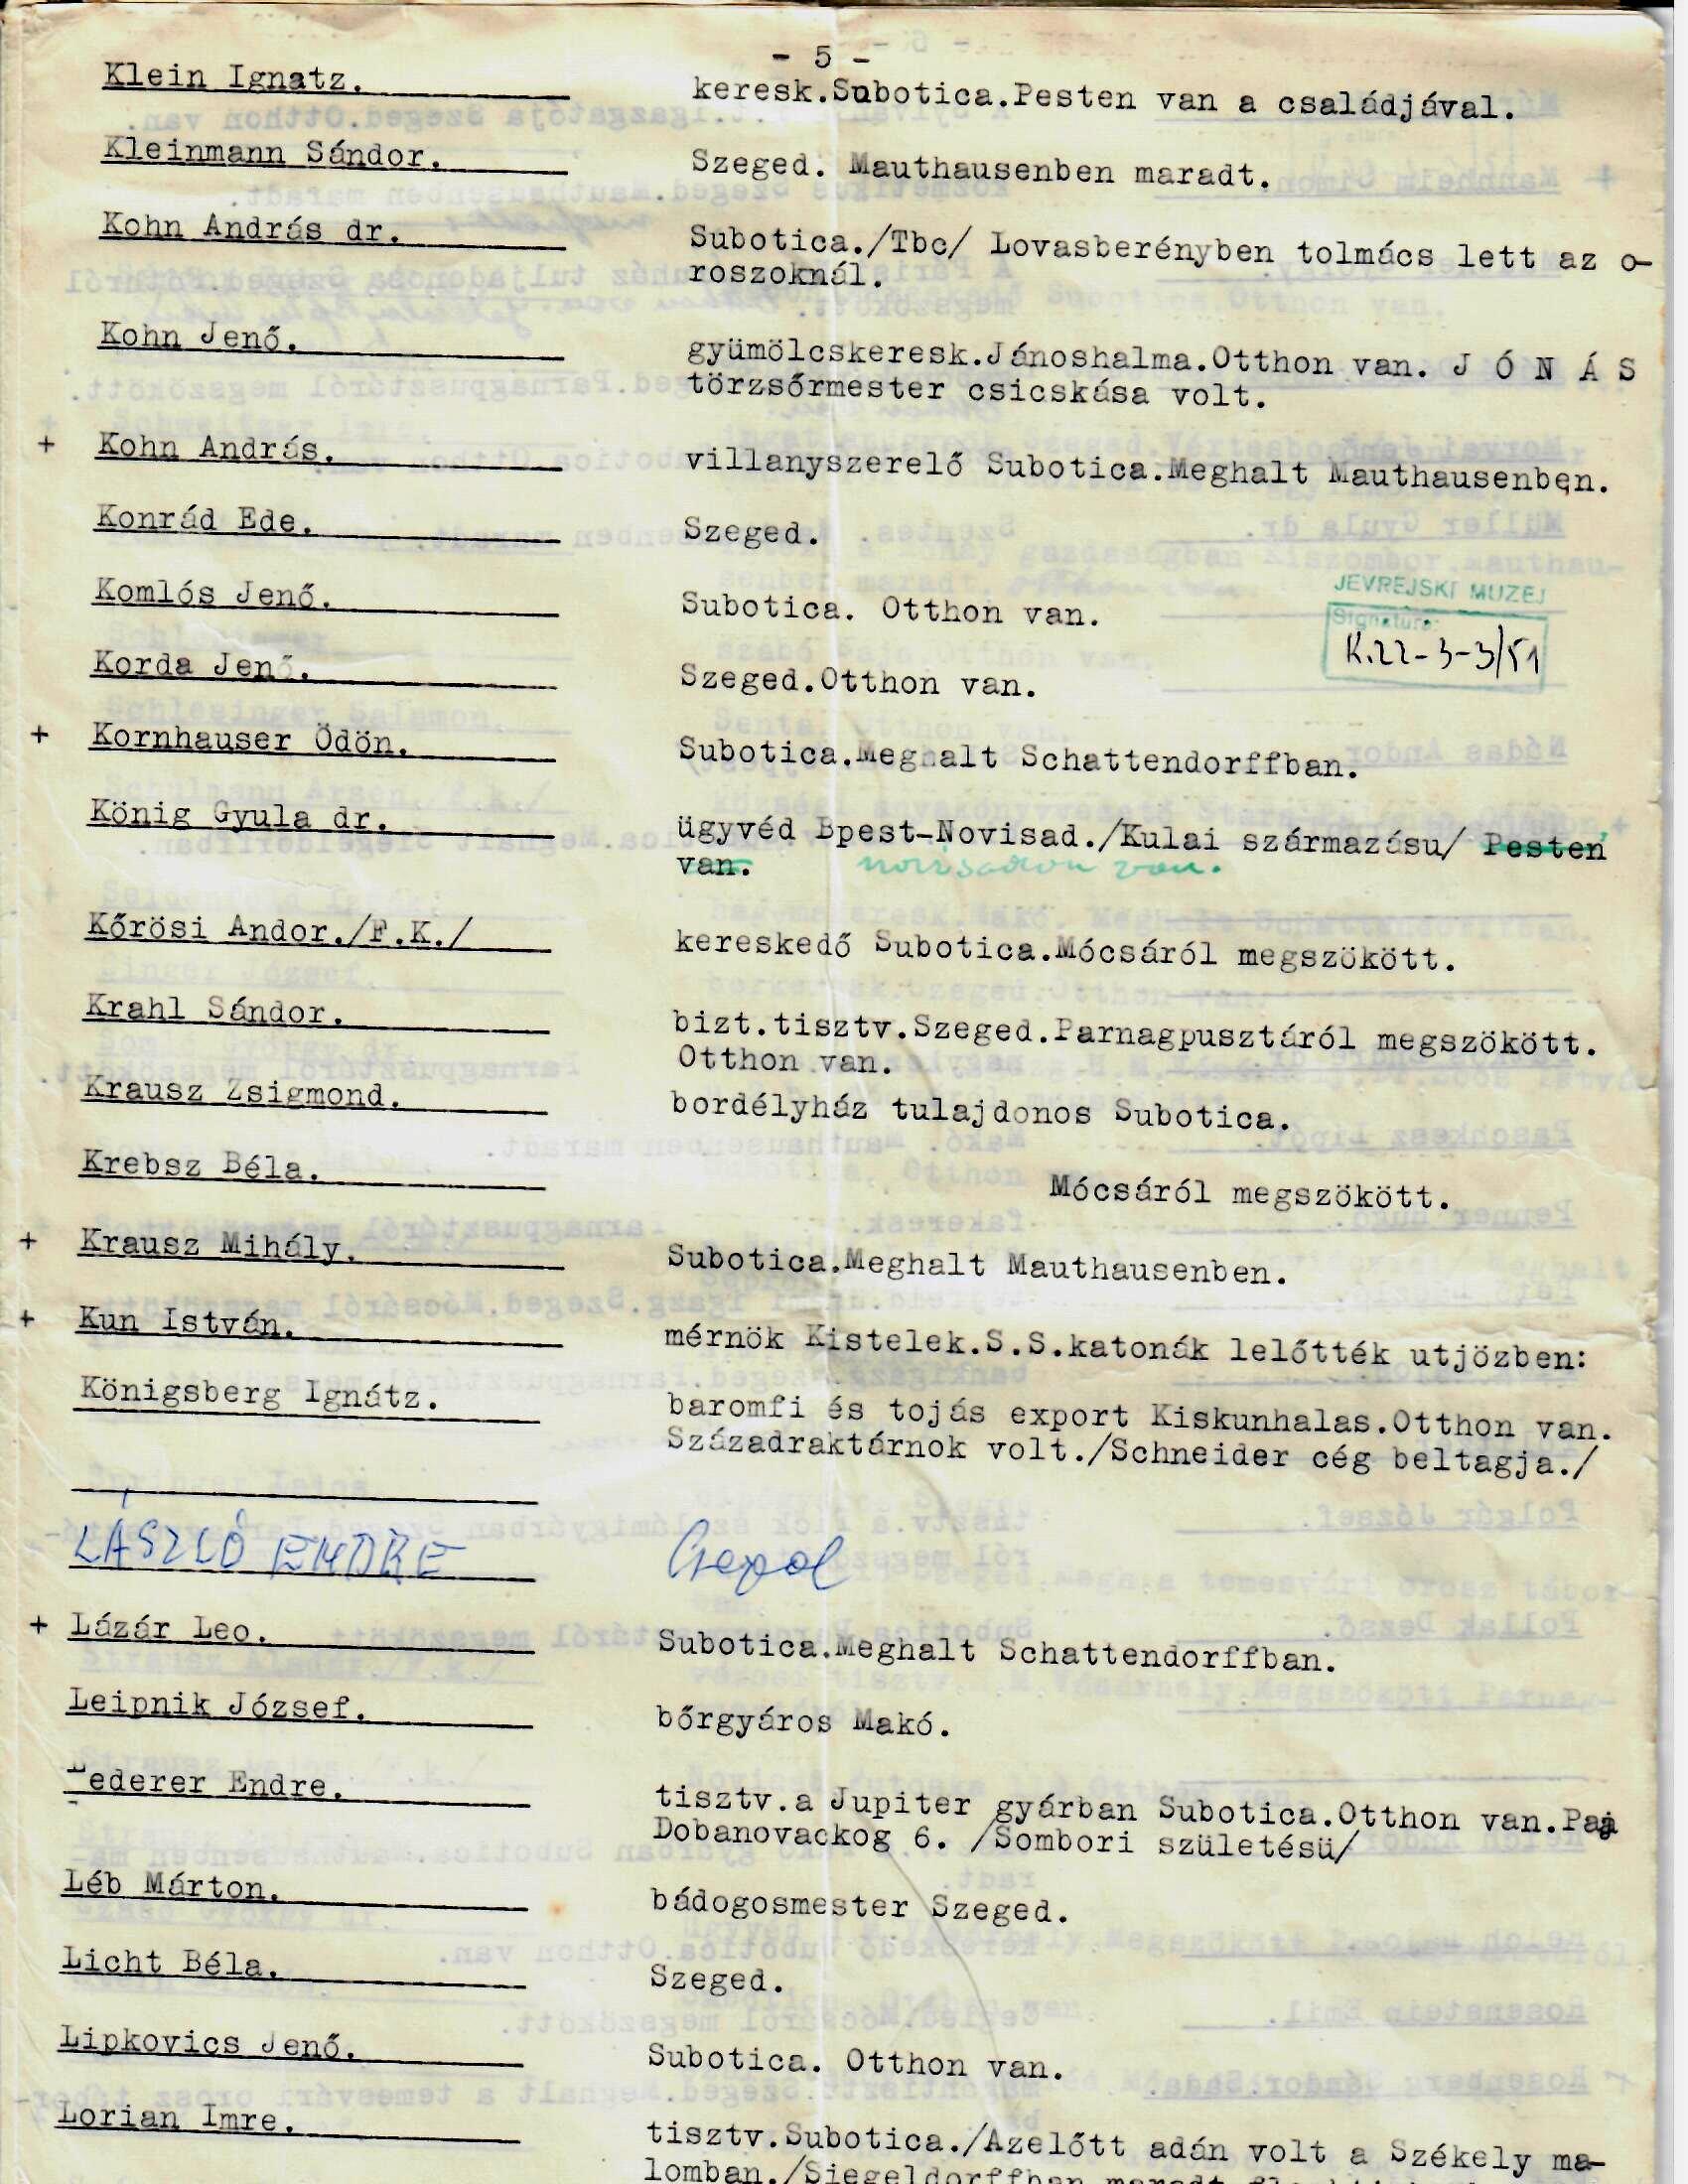 - 5 -
Klein Ignatz. keresk.Subotica.Pesten van a családjával.
Kleinmann Sándor. Szeged. Mauthausenben maradt.
Kohn András dr. Subotica./Tbc/ Lovasberényben tolmács lett az o-
roszoknál.
Kohn Jenő. gyümölcskeresk.Jánoshalma.Otthon van. J Ó N Á S
törzsőrmester csicskása volt.
+ Kohn András. villanyszerelő Subotica.Meghalt Mauthausenben.
Konrád Ede. Szeged.
JEVREJSKI MUZEJ
Signatura:
K.22-3-3/51
Komlós Jenő. Subotica. Otthon van.
Korda Jenő. Szeged.Otthon van.
+ Kornhauser Ödön. Subotica.Meghalt Schattendorffban.
König Gyula dr. ügyvéd Bpest-Novisad./Kulai származásu/ Pesten
van. novisadon van.
Kőrösi Andor./F.K./ kereskedő Subotica.Mócsáról megszökött.
Krahl Sándor. bizt.tisztv.Szeged.Parnagpusztáról megszökött.
Otthon van.
Krausz Zsigmond. bordélyház tulajdonos Subotica.
Krebsz Béla. Mócsáról megszökött.
+ Krausz Mihály. Subotica.Meghalt Mauthausenben.
+ Kun István. mérnök Kistelek.S.S.katonák lelőtték utjözben:
Königsberg Ignátz. baromfi és tojás export Kiskunhalas.Otthon van.
Századraktárnok volt./Schneider cég beltagja./
LÁSZLÓ ENDRE Csepel
+ Lázár Leo. Subotica.Meghalt Schattendorffban.
Leipnik József. bőrgyáros Makó.
Lederer Endre. tisztv.a Jupiter gyárban Subotica.Otthon van.Paja
Dobanovackog 6. /Sombori születésü/
Léb Márton. bádogosmester Szeged.
Licht Béla. Szeged.
Lipkovics Jenő. Subotica. Otthon van.
Lorian Imre. tisztv.Subotica./Azelőtt adán volt a Székely ma-
lomban./Siegeldorffban maradt